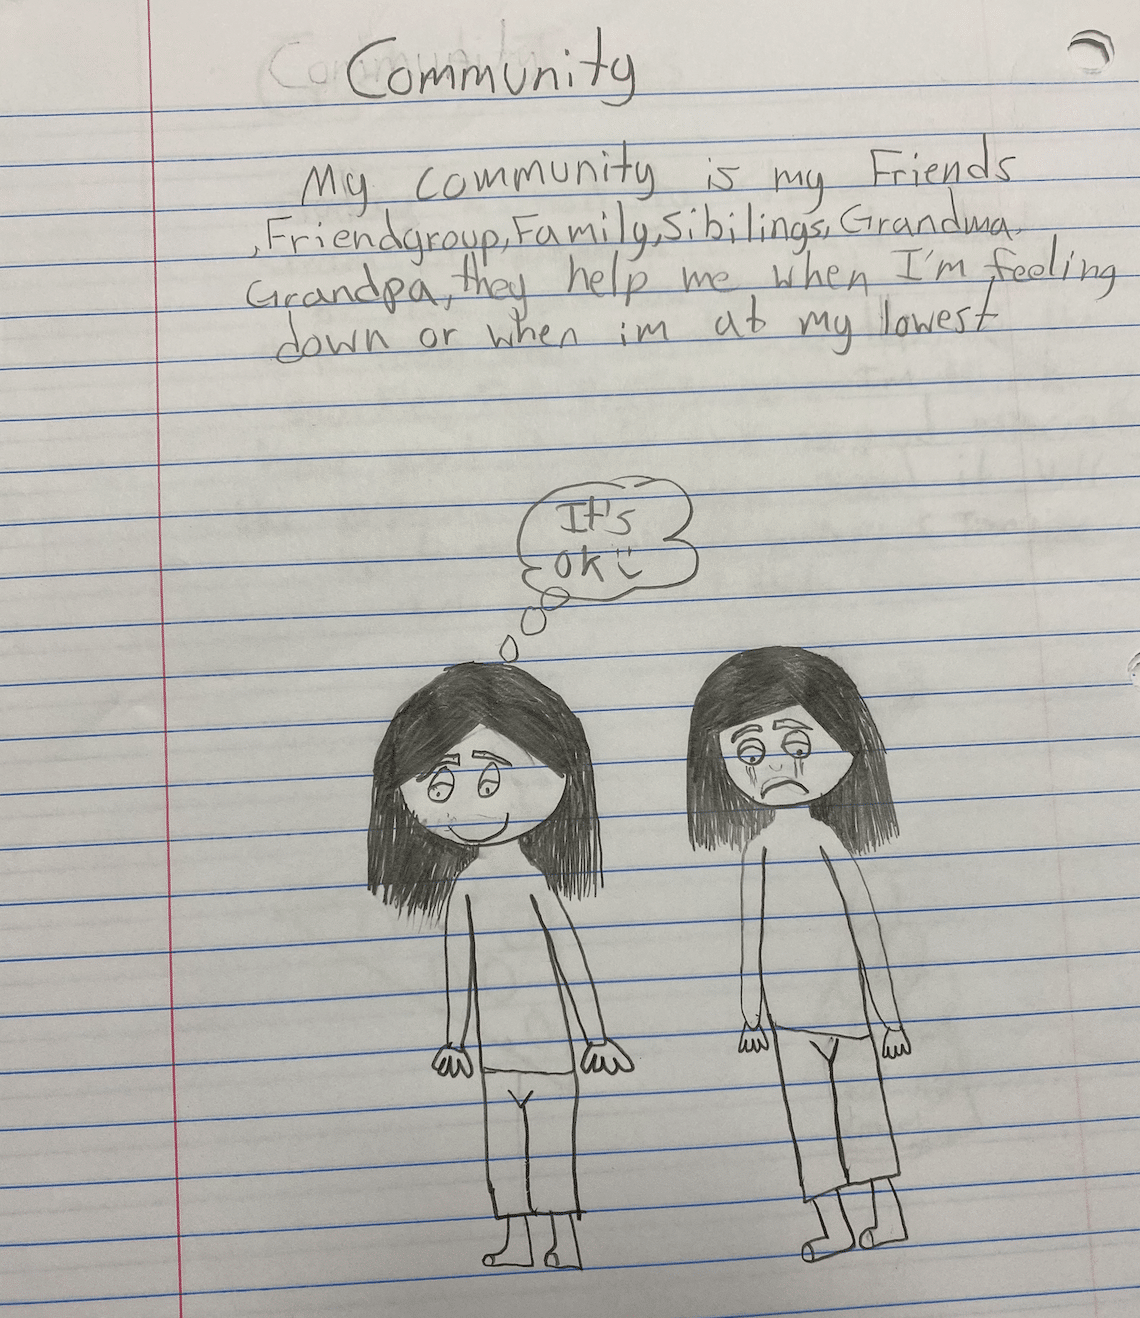 Community
My community is my Friends
,Friendgroup,Family,Sibilings,Grandma,
Grandpa,they help me when I'm feeling
down or when im at my lowest
It's
ok